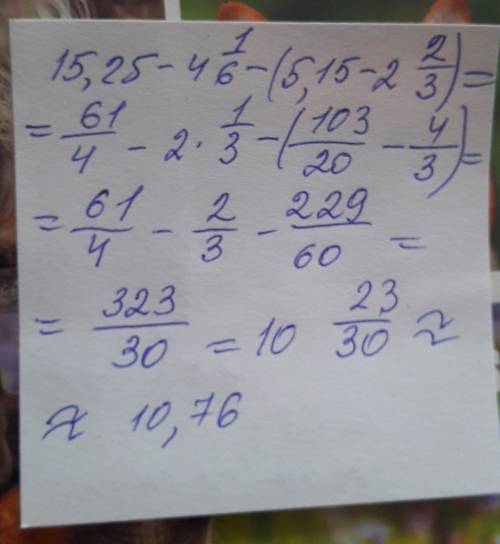 15,25 - 4 1/6 - (5,15 - 2 2/3) =
= 61/4 - 2 · 1/3 - (103/20 - 4/3) =
= 61/4 - 2/3 - 229/60 =
= 323/30 = 10 23/30 ≈
≈ 10,76